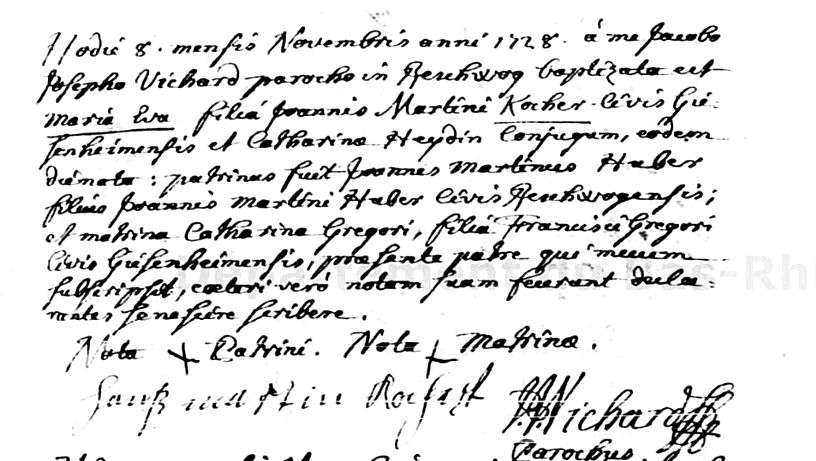 Hodiè 8. mensis Novembris anni 1728. à me Jacobo
Josepho Vichard parocho in Reschwog baptizata est
Maria Eva filia Joannis Martini Kocher Civis Gi-
senheimensis et Catharinæ Heydin Conjugum, eodem
die nata: patrinus fuit Joannes Martinus Haber
filius Joannis Martini Haber Civis Reschwogensis;
et matrina Catharina Gregori, filia Francisci Gregori
Civis Gisenheimensis, præsente patre qui mecum
subscripsit, cæteri verò notam suam fecerunt decla-
rantes se nescire scribere.
Nota + Patrini. Nota + Matrinæ.
Hanß martin JJVichard
Parochus
Département du Bas-Rhi